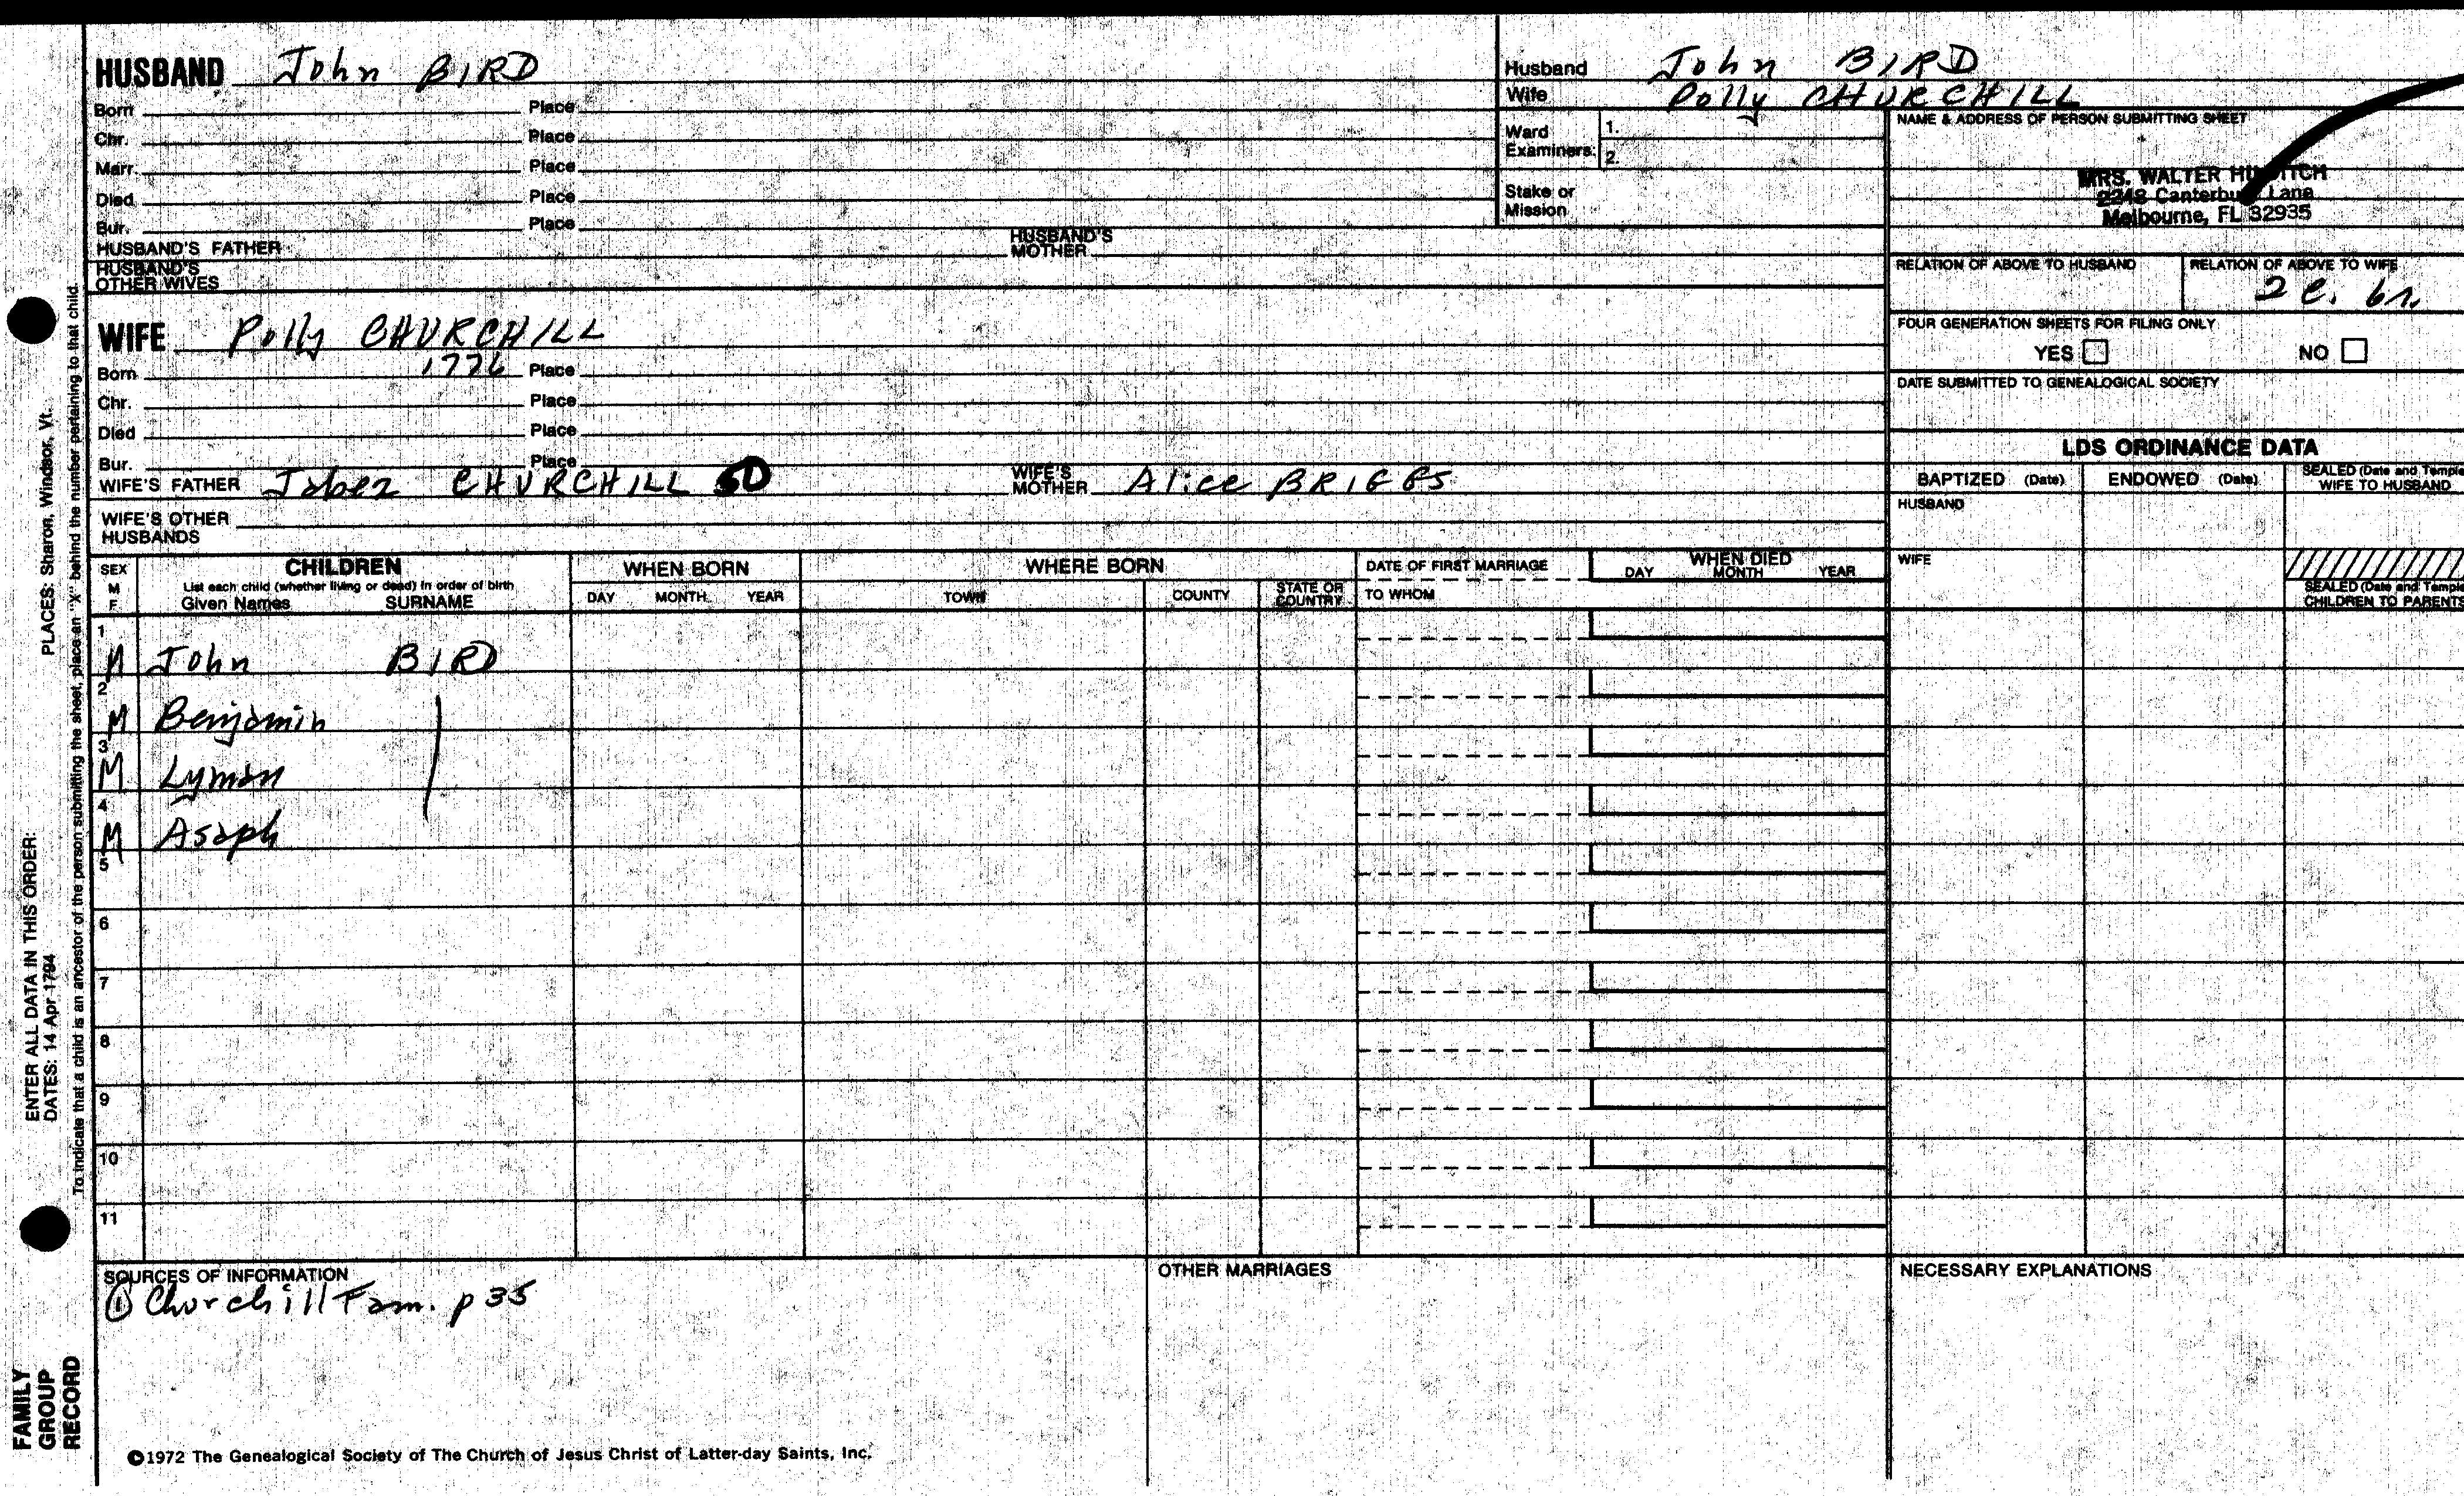 HUSBAND John BIRD
Born Place
Chr. Place
Marr. Place
Died Place
Bur. Place
HUSBAND'S FATHER HUSBAND'S MOTHER
HUSBAND'S OTHER WIVES
Husband John BIRD
Wife Polly CHURCHILL
Ward Examiners: 1.
2.
Stake or Mission
NAME & ADDRESS OF PERSON SUBMITTING SHEET
MRS. WALTER
2248 Canterbury Lane
Melbourne, FL 32935
RELATION OF ABOVE TO HUSBAND RELATION OF ABOVE TO WIFE
2 C. br.
FOUR GENERATION SHEETS FOR FILING ONLY
YES NO
DATE SUBMITTED TO GENEALOGICAL SOCIETY
WIFE Polly CHURCHILL
Born 1776 Place
Chr. Place
Died Place
Bur. Place
WIFE'S FATHER Jabez CHURCHILL 50 WIFE'S MOTHER Alice BRIGGS
WIFE'S OTHER HUSBANDS
LDS ORDINANCE DATA
BAPTIZED (Date) ENDOWED (Date) SEALED (Date and Temple) WIFE TO HUSBAND
HUSBAND
WIFE
SEALED (Date and Temple) CHILDREN TO PARENTS
SEX M F
CHILDREN
List each child (whether living or dead) in order of birth
Given Names SURNAME
WHEN BORN
DAY MONTH YEAR
WHERE BORN
TOWN COUNTY STATE OR COUNTRY
DATE OF FIRST MARRIAGE
TO WHOM
WHEN DIED
DAY MONTH YEAR
1 M John BIRD
2 M Benjamin
3 M Lyman
4 M Asaph
5
6
7
8
9
10
11
SOURCES OF INFORMATION
① Churchill Fam. p 35
OTHER MARRIAGES
NECESSARY EXPLANATIONS
©1972 The Genealogical Society of The Church of Jesus Christ of Latter-day Saints, Inc.
FAMILY GROUP RECORD
ENTER ALL DATA IN THIS ORDER:
DATES: 14 Apr 1794
PLACES: Sharon, Windsor, Vt.
To indicate that a child is an ancestor of the person submitting the sheet, place an "X" behind the number pertaining to that child.